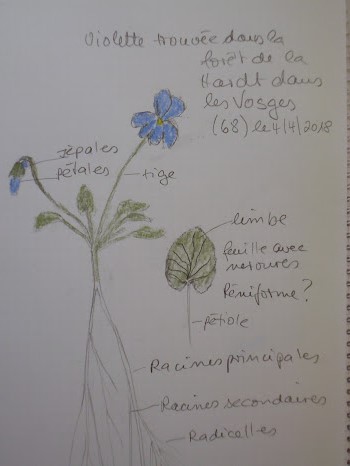 Violette trouvée dans la
forêt de la
Hardt dans
les Vosges
(68) le 4/4/2018
sépales
pétales
tige
limbe
feuille avec
nervures
Réniforme?
pétiole
Racines principales
Racines secondaires
Radicelles